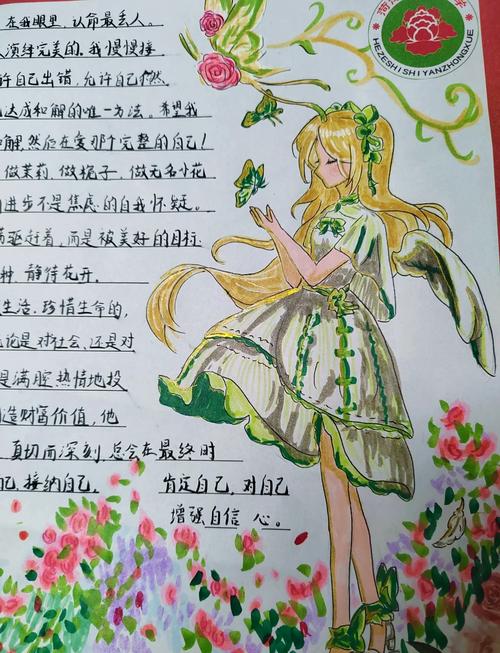 在我眼里，认命最丢人。
完美的，我慢慢接
许自己出错，允许自己
达成和解的唯一方法。希望我
和解，然后在爱那个完整的自己！
做茉莉，做栀子，做无名小花
进步不是焦虑的自我怀疑。
驱赶着，而是被美好的目标
种，静待花开。
生活、珍惜生命的，
论是对社会、还是对
是满腔热情地投
造财富价值，他
真切而深刻 总会在最终时
己，接纳自己， 肯定自己，对自己
增强自信 心。
学
HEZESHISHIYANZHONGXUE